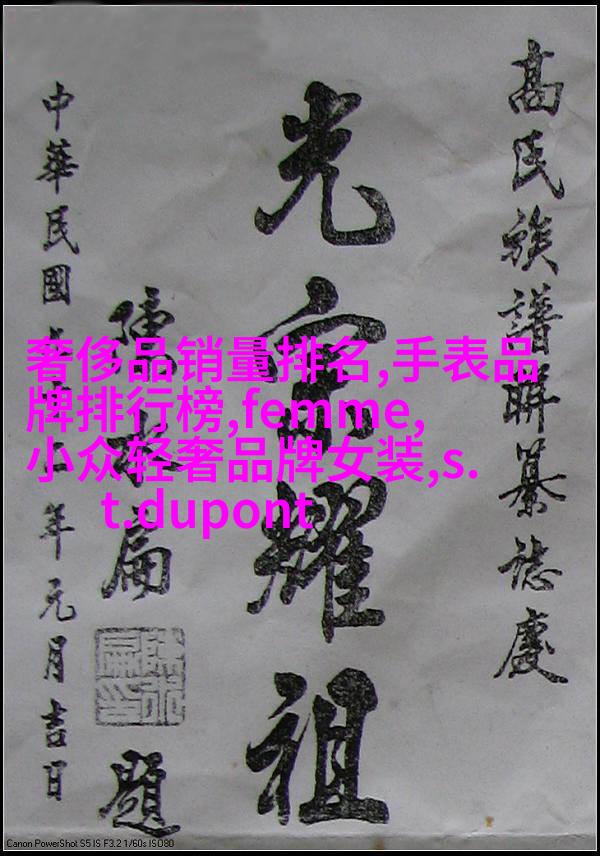 高氏族譜聯纂誌慶
光宗耀祖
陳水扁題
中華民國 十 年元月吉日
奢侈品销量排名,手表品
牌排行榜,femme,
小众轻奢品牌女装,s.
t.dupont
Canon PowerShot S5 IS F3.2 1/60s ISO80